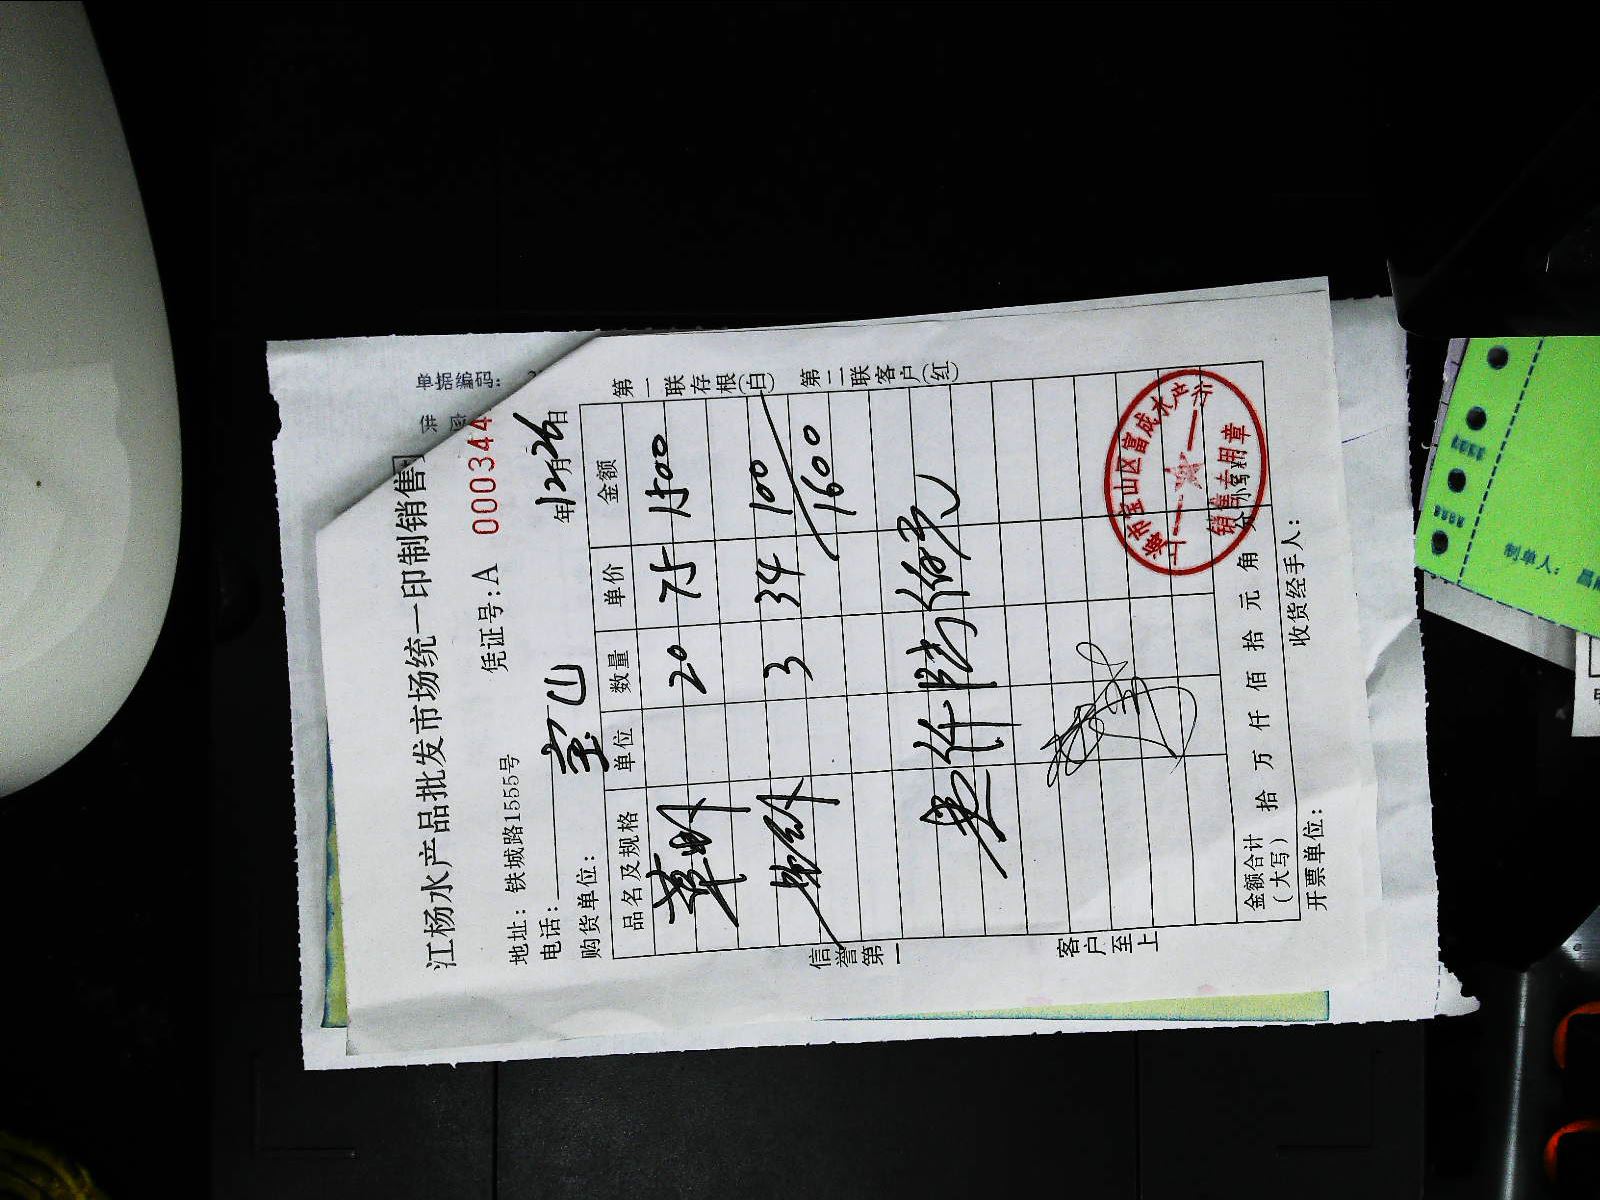 江杨水产品批发市场统一印制销售
单据编码:
凭证号:A 0003444
地址: 铁城路1555号
电话:
年12月26日
购货单位: 宝山
品名及规格 单位 数量 单价 金额
草虾 20 75 1500
3 34 100
1600
壹仟陆佰元
第一联存根(白) 第二联客户(红)
信誉第一
客户至上
上海市宝山区富成水产行
销售专用章
金额合计(大写) 拾 万 仟 佰 拾 元 角 分 小写¥
开票单位:
收货经手人:
制单人: